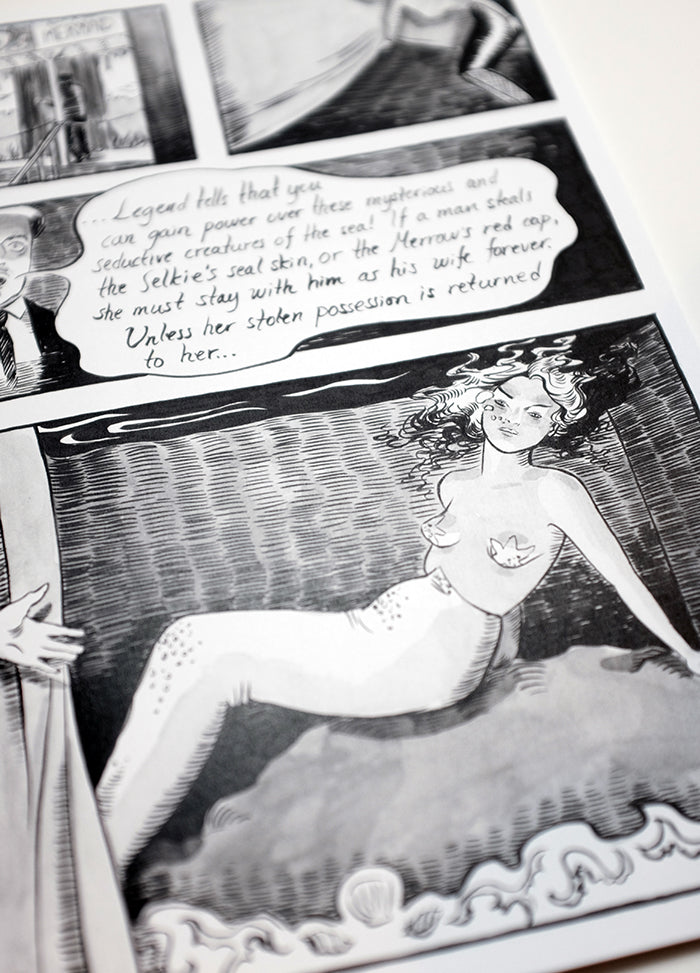 MERMAID
...Legend tells that you
can gain power over these mysterious and
seductive creatures of the sea! If a man steals
the Selkie's seal skin, or the Merrow's red cap,
she must stay with him as his wife forever.
Unless her stolen possession is returned
to her...